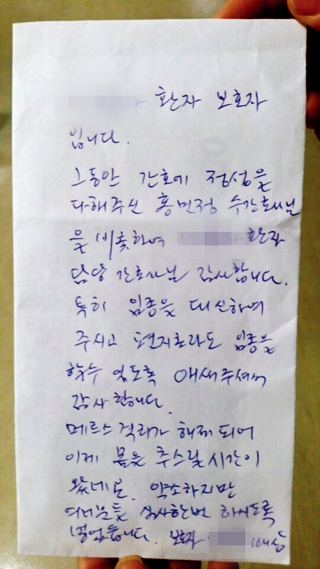 환자 보호자
입니다.
그동안 간호에 정성을
다해주신 홍민정 수간호사님
을 비롯하여 환자
담당 간호사님 감사합니다.
특히 임종을 대신하여
주시고 편지로라도 임종을
할수 있도록 애써주셔서
감사합니다.
메르스 격리가 해제되어
이제 몸을 추스릴 시간이
왔네요. 약소하지만
여러분들 식사한번 하시도록
넣었습니다. 보호자